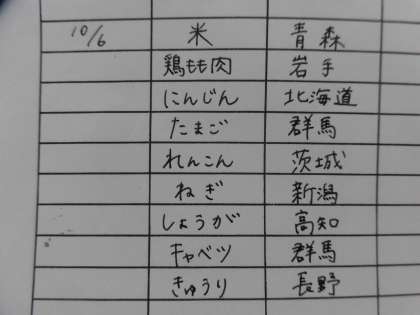 10/6 米 青森
鶏もも肉 岩手
にんじん 北海道
たまご 群馬
れんこん 茨城
ねぎ 新潟
しょうが 高知
キャベツ 群馬
きゅうり 長野